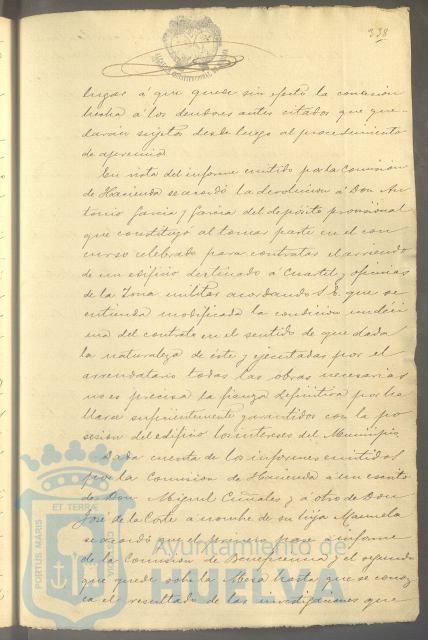 238
lugar á que quede sin efecto la concesión
hecha á los deudores antes citados que que-
darán sujetos desde luego al procedimiento
de apremio.
En vista del informe emitido por la Comisión
de Hacienda se acordó la devolucion á Don An
tonio Garcia y Garcia del depósito provisional
que constituyó al tomar parte en el con
curso celebrado para contratar el arriendo
de un edificio destinado á Cuartel y oficinas
de la Zona militar acordando S. E. que se
entienda modificada la condicion undéci
ma del contrato en el sentido de que dada
la naturaleza de este y ejecutadas por el
arrendatario todas las obras necesarias
no es precisa la fianza definitiva por ha
llarse suficientemente garantidos con la po
sesión del edificio los intereses del Municipio.
Dada cuenta de los informes emitidos
por la Comision de Hacienda á un escrito
de Don Miguel y á otro de Don
José de la Corte á nombre de su hija Manuela
se acordó que el primero pase á informe
de la Comision de Beneficencia y el segundo
que quede sobre la Mesa hasta que se conoz
ca el resultado de las investigaciones que
PORTUS MARIS
ET TERRÆ
Ayuntamiento de
HUELVA